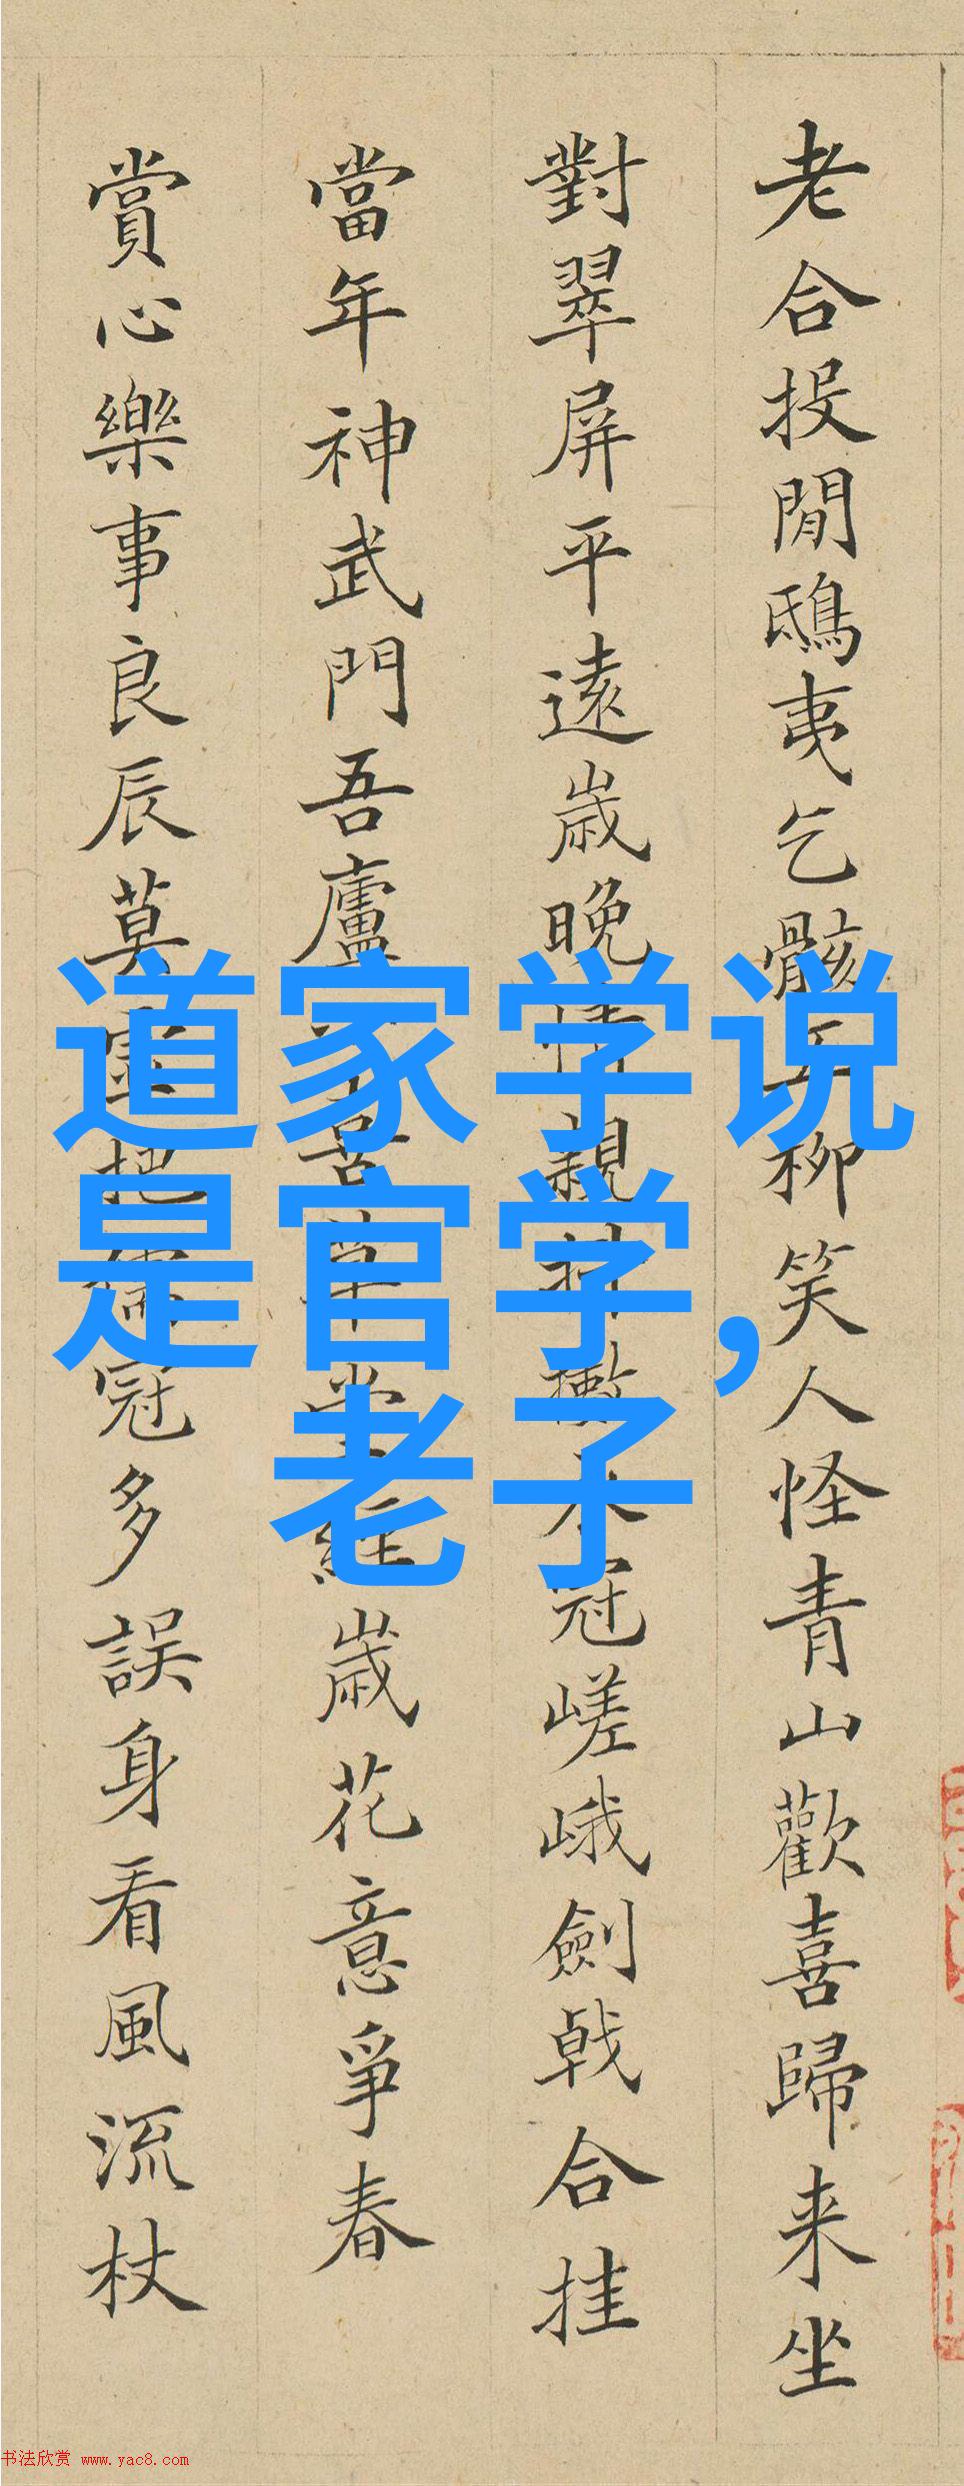 老合投閒鴟夷乞骸五柳笑人怪青山歡喜歸来坐
對翠屏平遠歲晚情親冠嵯峨劍戟合挂
當年神武門吾廬歲花意爭春
賞心樂事良辰莫把冠多誤身看風流杖
道家学说
是官学,
老子
书法欣赏 www.yac8.com